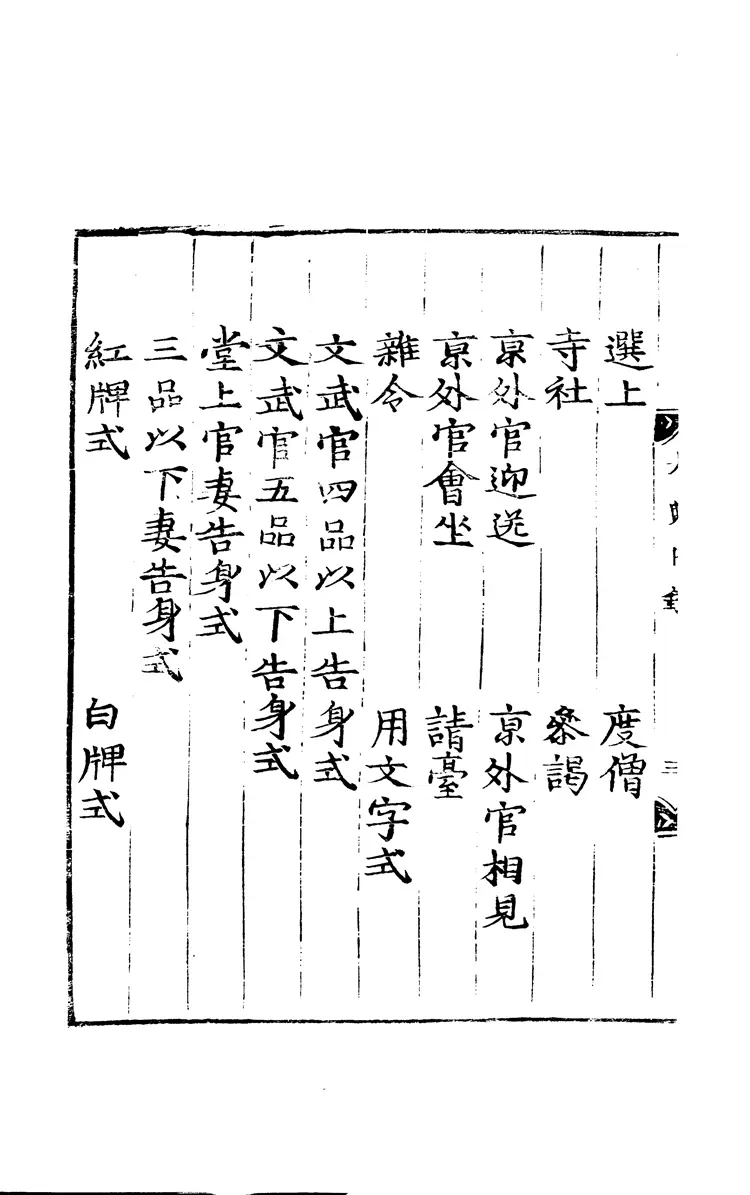 選上　度僧
寺社　參謁
京外官迎送　京外官相見
京外官會坐　請臺
雜令　用文字式
文武官四品以上告身式
文武官五品以下告身式
堂上官妻告身式
三品以下妻告身式
紅牌式　白牌式